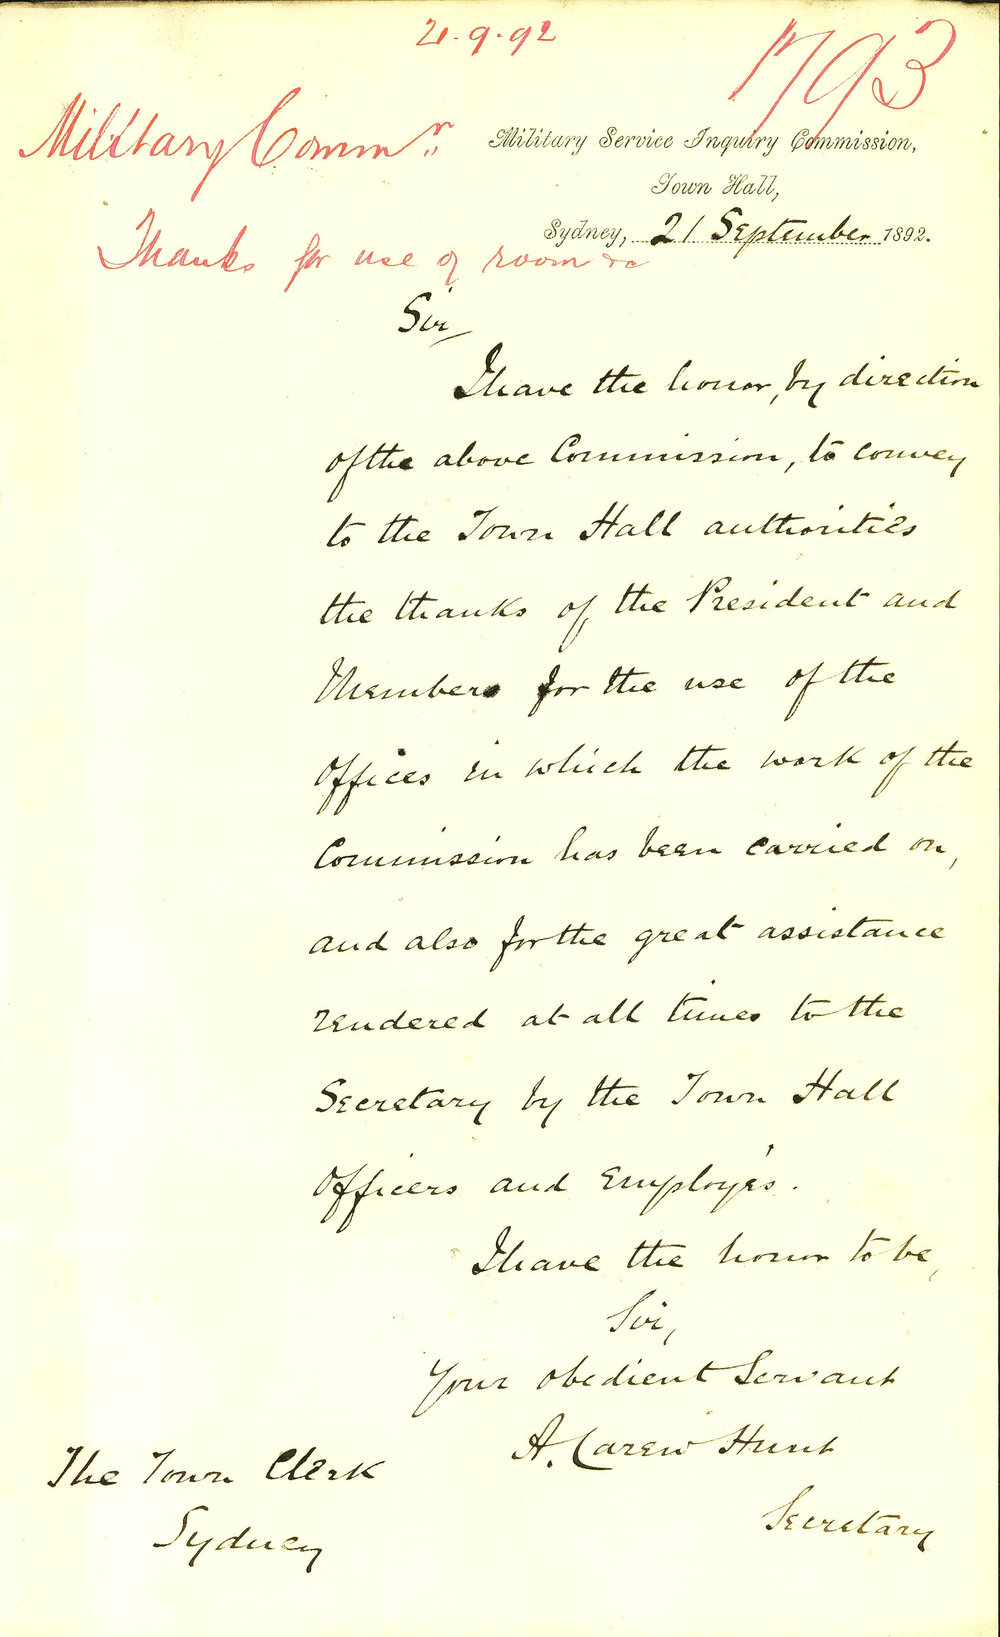 21.9.92
1793
Military Commn
Military Service Inquiry Commission,
Town Hall,
Sydney, 21 September 1892.
Thanks for use of room &c
Sir
I have the honor, by direction
of the above Commission, to convey
to the Town Hall authorities
the thanks of the President and
Members for the use of the
Offices in which the work of the
Commission has been carried on,
and also for the great assistance
rendered at all times to the
Secretary by the Town Hall
Officers and Employés.
I have the honor to be,
Sir,
Your obedient Servant
A. Carew Hunt
Secretary
The Town Clerk
Sydney